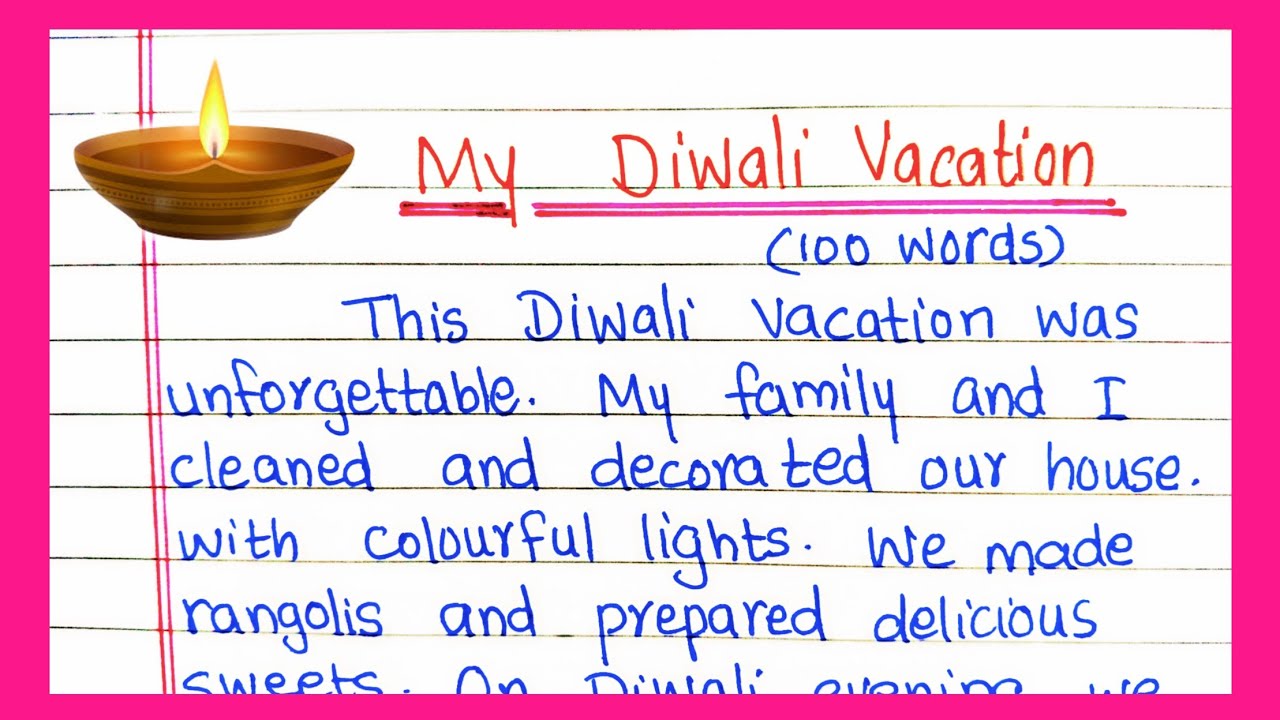 My Diwali Vacation
(100 words)
This Diwali vacation was
unforgettable. My family and I
cleaned and decorated our house.
with colourful lights. We made
rangolis and prepared delicious
sweets. On Diwali evening we